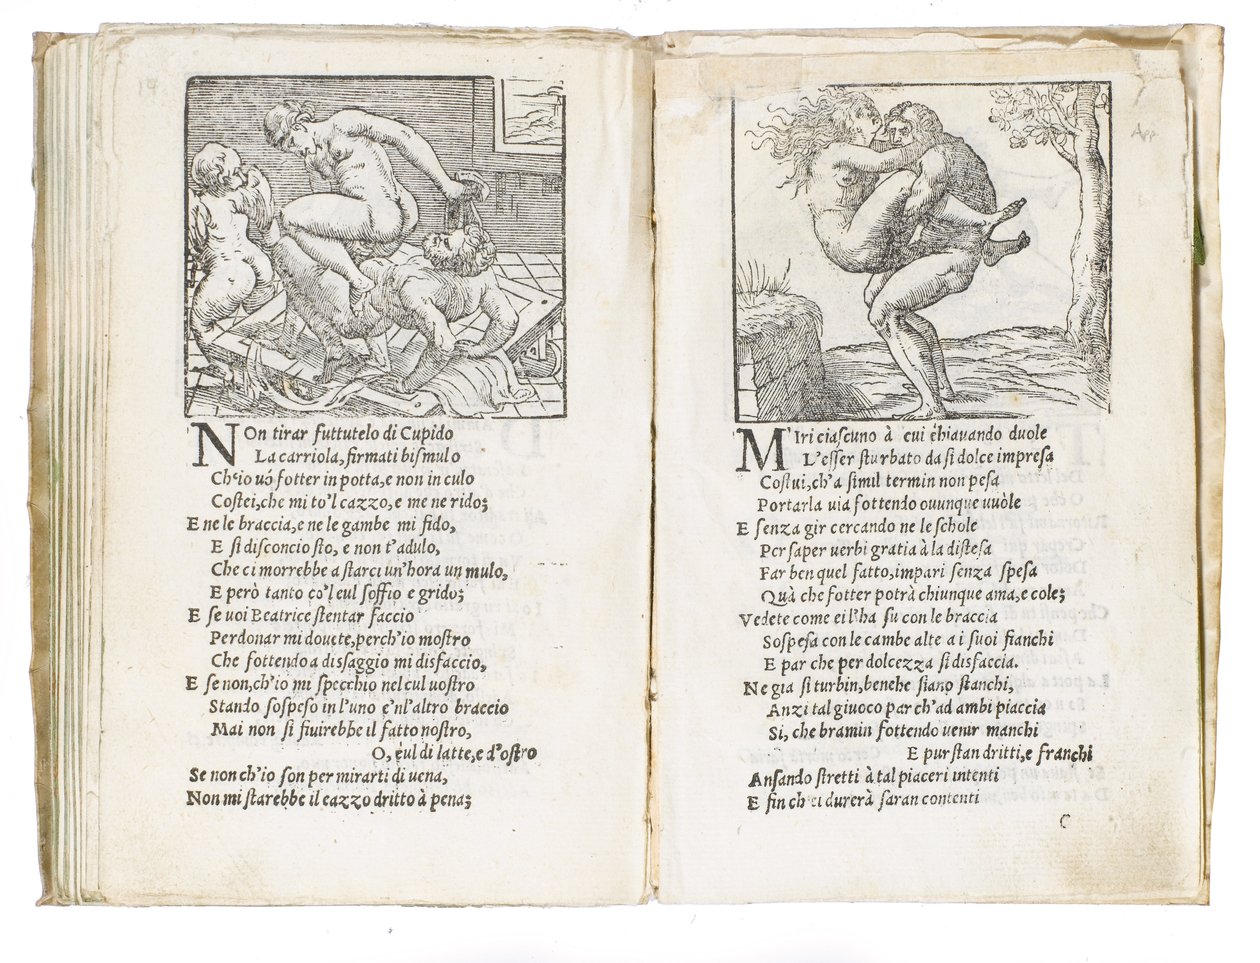 NOn tirar futtutelo di Cupido
La carriola, firmati bismulo
Ch'io uó fotter in potta, e non in culo
Costei, che mi to'l cazzo, e me ne rido;
E ne le braccia, e ne le gambe mi fido,
E si disconcio sto, e non t'adulo,
Che ci morrebbe a starci un'hora un mulo,
E però tanto co'l cul soffio e grido;
E se uoi Beatrice stentar faccio
Perdonar mi douete, perch'io mostro
Che fottendo a disaggio mi disfaccio,
E se non, ch'io mi specchio nel cul uostro
Stando sospeso in l'uno e'n l'altro braccio
Mai non si finirebbe il fatto nostro,
O, cul di latte, e d'ostro
Se non ch'io son per mirarti di uena,
Non mi starebbe il cazzo dritto à pena;
MIri ciascuno à cui chiauando duole
L'esser sturbato da sì dolce impresa
Costui, ch'a simil termin non pesa
Portarla uia fottendo ouunque uuòle
E senza gir cercando ne le schole
Per saper uerbi gratia à la distesa
Far ben quel fatto, impari senza spesa
Quà che fotter potrà chiunque ama, e cole;
Vedete come ei l'ha su con le braccia
Sospesa con le cambe alte a i suoi fianchi
E par che per dolcezza si disfaccia.
Ne gia si turbin, benche siano stanchi,
Anzi tal giuoco par ch'ad ambi piaccia
Si, che bramin fottendo uenir manchi
E pur stan dritti, e franchi
Ansando stretti à tal piaceri intenti
E fin ch'ei durerà saran contenti
C